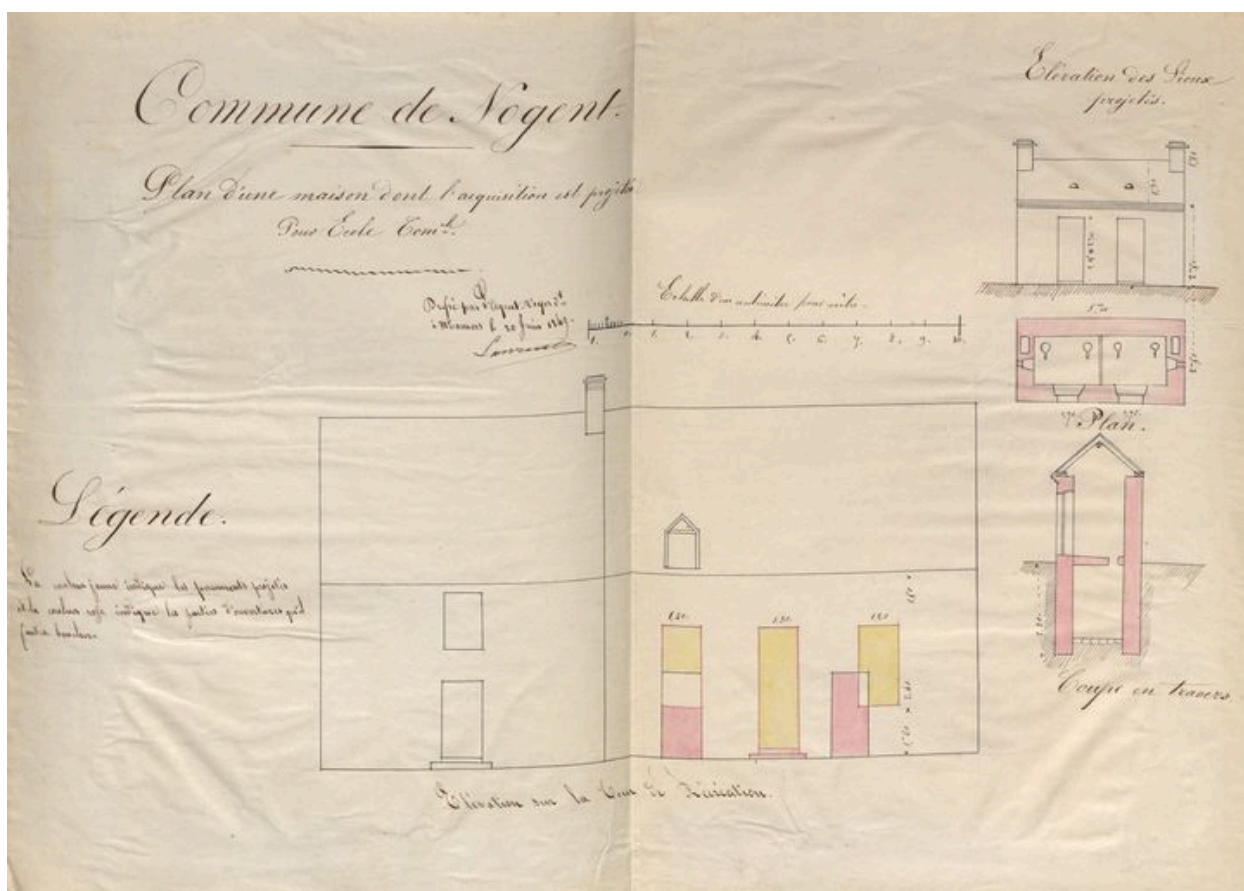 Commune de Nogent.
Plan d'une maison dont l'acquisition est projetée
Pour Ecole Com.le
Dressé par l'Agent-Voyer
à Mamers le 20 Juin 1869.
Echelle d'un centimètre pour mètre.
0. 1. 2. 3. 4. 5. 6. 7. 8. 9. 10.
Elévation des Lieux
projetés.
Plan.
Coupe en travers.
Légende.
La couleur jaune indique les percements projetés
et la couleur rose indique les parties d'ouvertures qu'il
faudra boucher.
1,20. 1,30. 1,20
Elévation sur la Cour de Récréation.